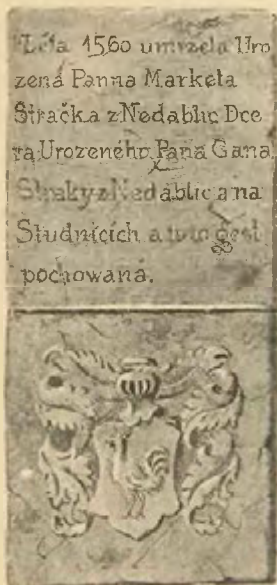 Léta 1560 umrzela Uro
zena Panna Marketa
Stračka z Nedablic Dce
ra Urozeného Pana Gana
Straky z Nedablic a na
Studnicich a tuto gest
pochowana.